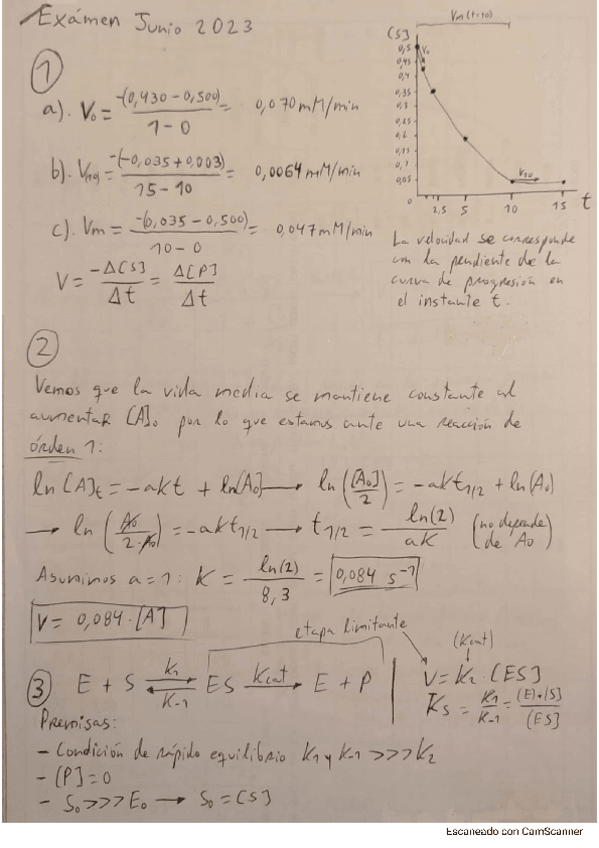 Exámen Junio 2023
①
a). V₀ = -(0,430-0,500) / 1-0 = 0,070 mM/min
b). V₁₀ = -(-0,035+0,003) / 15-10 = 0,0064 mM/min
c). Vm = -(0,035-0,500) / 10-0 = 0,047 mM/min
V = -Δ[S] / Δt = Δ[P] / Δt
Vm (t=10)
[S]
0,5
0,45
0,4
0,35
0,3
0,25
0,2
0,15
0,1
0,05
0
V₀
V₁₀
2,5 5 10 15 t
La velocidad se corresponde
con la pendiente de la
curva de progresión en
el instante t.
②
Vemos que la vida media se mantiene constante al
aumentar [A]₀ por lo que estamos ante una reacción de
órden 1:
ln[A]t = -akt + ln[A₀] → ln([A₀]/2) = -akt1/2 + ln(A₀)
→ ln(A₀/2·A₀) = -akt1/2 → t1/2 = ln(2)/aK (no depende de A₀)
Asumimos a=1: K = ln(2)/8,3 = 0,084 s⁻¹
V = 0,084·[A]
etapa limitante
(Kcat)
③ E + S k₁ ⇌ K-1 ES Kcat → E + P
V = K₂·[ES]
Ks = K₁/K-1 = (E)·[S]/(ES]
Premisas:
- Condición de rápido equilibrio K₁ y K-1 >>> K₂
- [P]=0
- S₀ >>> E₀ → S₀ = [S]
Escaneado con CamScanner